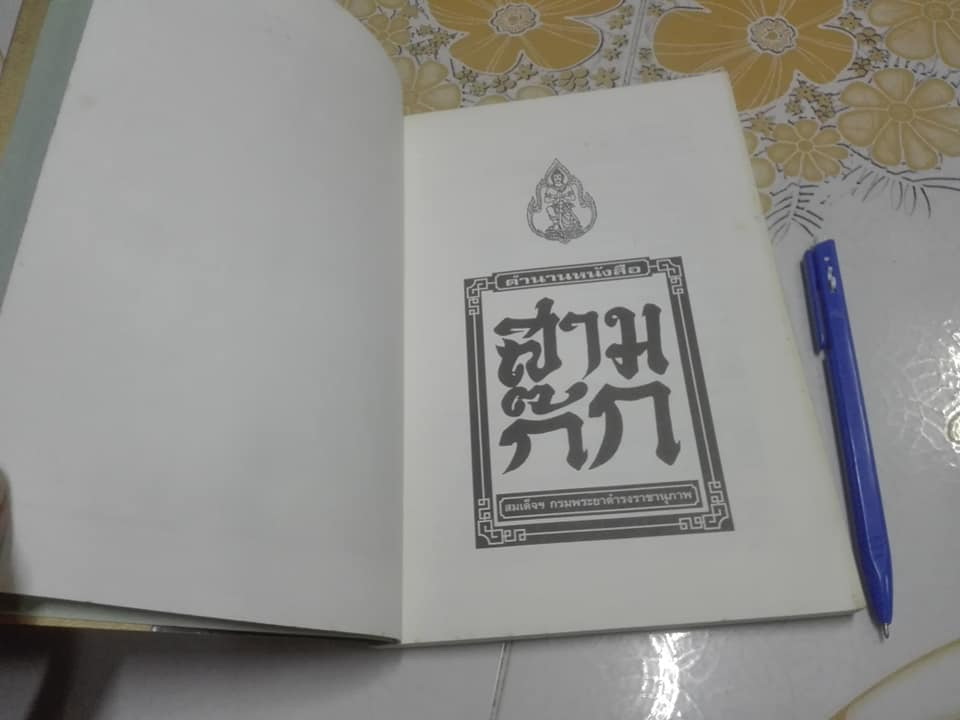 ตำนานหนังสือ
สาม
ก๊ก
สมเด็จฯ กรมพระยาดำรงราชานุภาพ